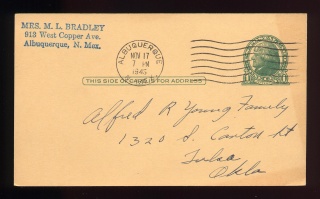 MRS. M. L. BRADLEY
913 West Copper Ave.
Albuquerque, N. Mex.
ALBUQUERQUE
NOV 17
7 PM
1945
THIS SIDE OF CARD IS FOR ADDRESS
Alfred R Young Family
1320 S. Canton St
Tulsa
Okla